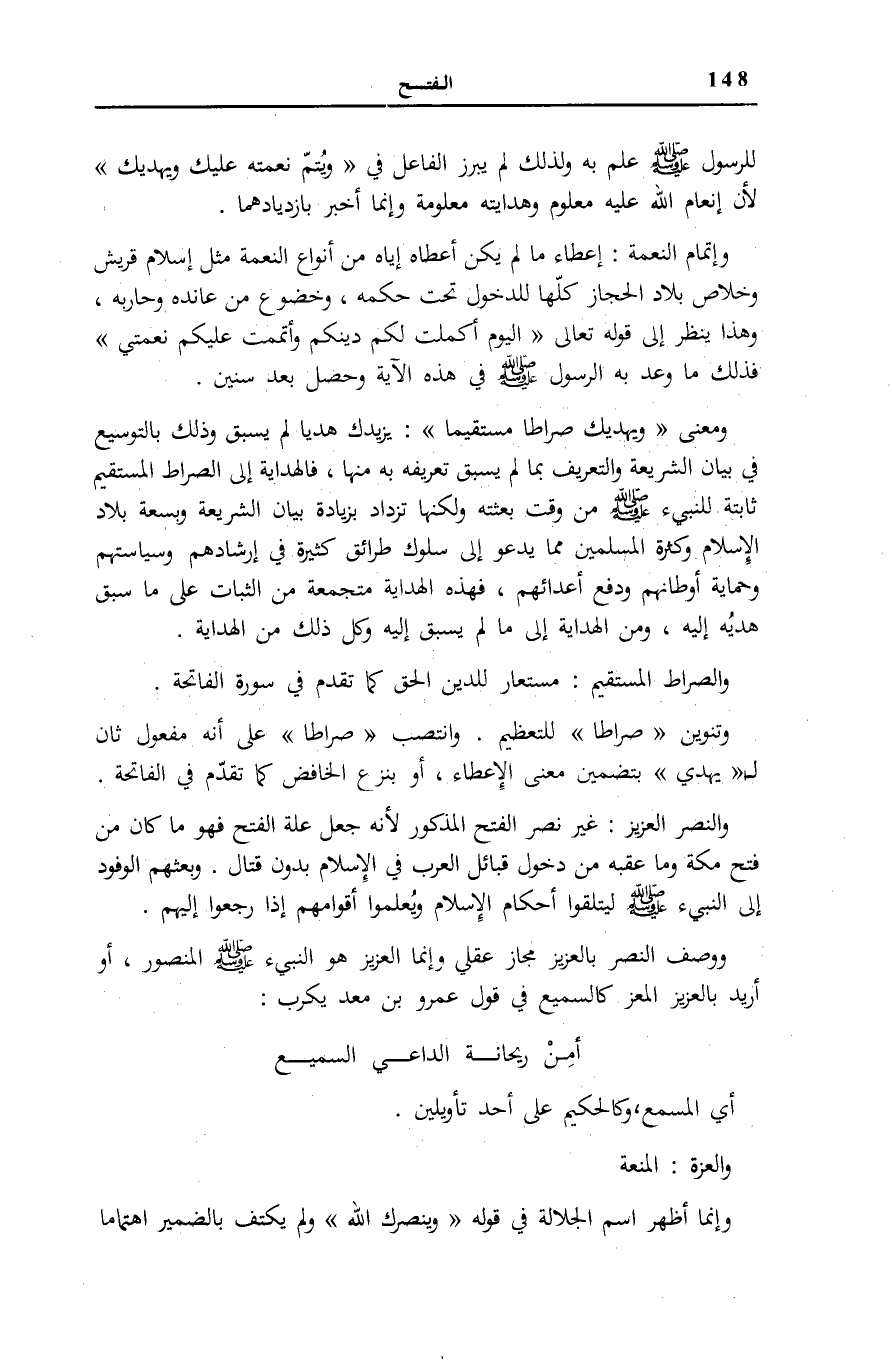 148
الفتـــح
للرسول ﷺ علم به ولذلك لم يبرز الفاعل في « ويُتمّ نعمته عليك ويهديك »
لأن إنعام الله عليه معلوم وهدايته معلومة وإنما أخبر بازديادهما .
وإتمام النعمة : إعطاء ما لم يكن أعطاه إياه من أنواع النعمة مثل إسلام قريش
وخلاص بلاد الحجاز كلّها للدخول تحت حكمه ، وخضوع من عانده وحاربه ،
وهذا ينظر إلى قوله تعالى « اليوم أكملت لكم دينكم وأتممت عليكم نعمتي »
فذلك ما وعد به الرسول ﷺ في هذه الآية وحصل بعد سنين .
ومعنى « ويهديك صراطا مستقيما » : يزيدك هديا لم يسبق وذلك بالتوسيع
في بيان الشريعة والتعريف بما لم يسبق تعريفه به منها ، فالهداية إلى الصراط المستقيم
ثابتة للنبيء ﷺ من وقت بعثته ولكنها تزداد بزيادة بيان الشريعة وبسعة بلاد
الإسلام وكثرة المسلمين مما يدعو إلى سلوك طرائق كثيرة في إرشادهم وسياستهم
وحماية أوطانهم ودفع أعدائهم ، فهذه الهداية متجمعة من الثبات على ما سبق
هديُه إليه ، ومن الهداية إلى ما لم يسبق إليه وكل ذلك من الهداية .
والصراط المستقيم : مستعار للدين الحق كما تقدم في سورة الفاتحة .
وتنوين « صراطا » للتعظيم . وانتصب « صراطا » على أنه مفعول ثان
لـ« يهدي » بتضمين معنى الإعطاء ، أو بنزع الخافض كما تقدّم في الفاتحة .
والنصر العزيز : غير نصر الفتح المذكور لأنه جعل علة الفتح فهو ما كان من
فتح مكة وما عقبه من دخول قبائل العرب في الإسلام بدون قتال . وبعثهم الوفود
إلى النبيء ﷺ ليتلقوا أحكام الإسلام ويُعلموا أقوامهم إذا رجعوا إليهم .
ووصف النصر بالعزيز مجاز عقلي وإنما العزيز هو النبيء ﷺ المنصور ، أو
أريد بالعزيز المعز كالسميع في قول عمرو بن معد يكرب :
أمِنْ ريحانـــة الداعـــي السميـــع
أي المسمع،وكالحكيم على أحد تأويلين .
والعزة : المنعة
وإنما أظهر اسم الجلالة في قوله « وينصرك الله » ولم يكتف بالضمير اهتماما